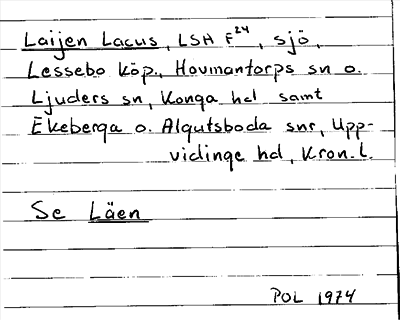 Laijen Lacus, LSH F24, sjö,
Lessebo köp., Hovmantorps sn o.
Ljuders sn, Konga hd samt
Ekeberga o. Algutsboda snr, Upp-
vidinge hd, Kron. l.
Se Läen
POL 1974